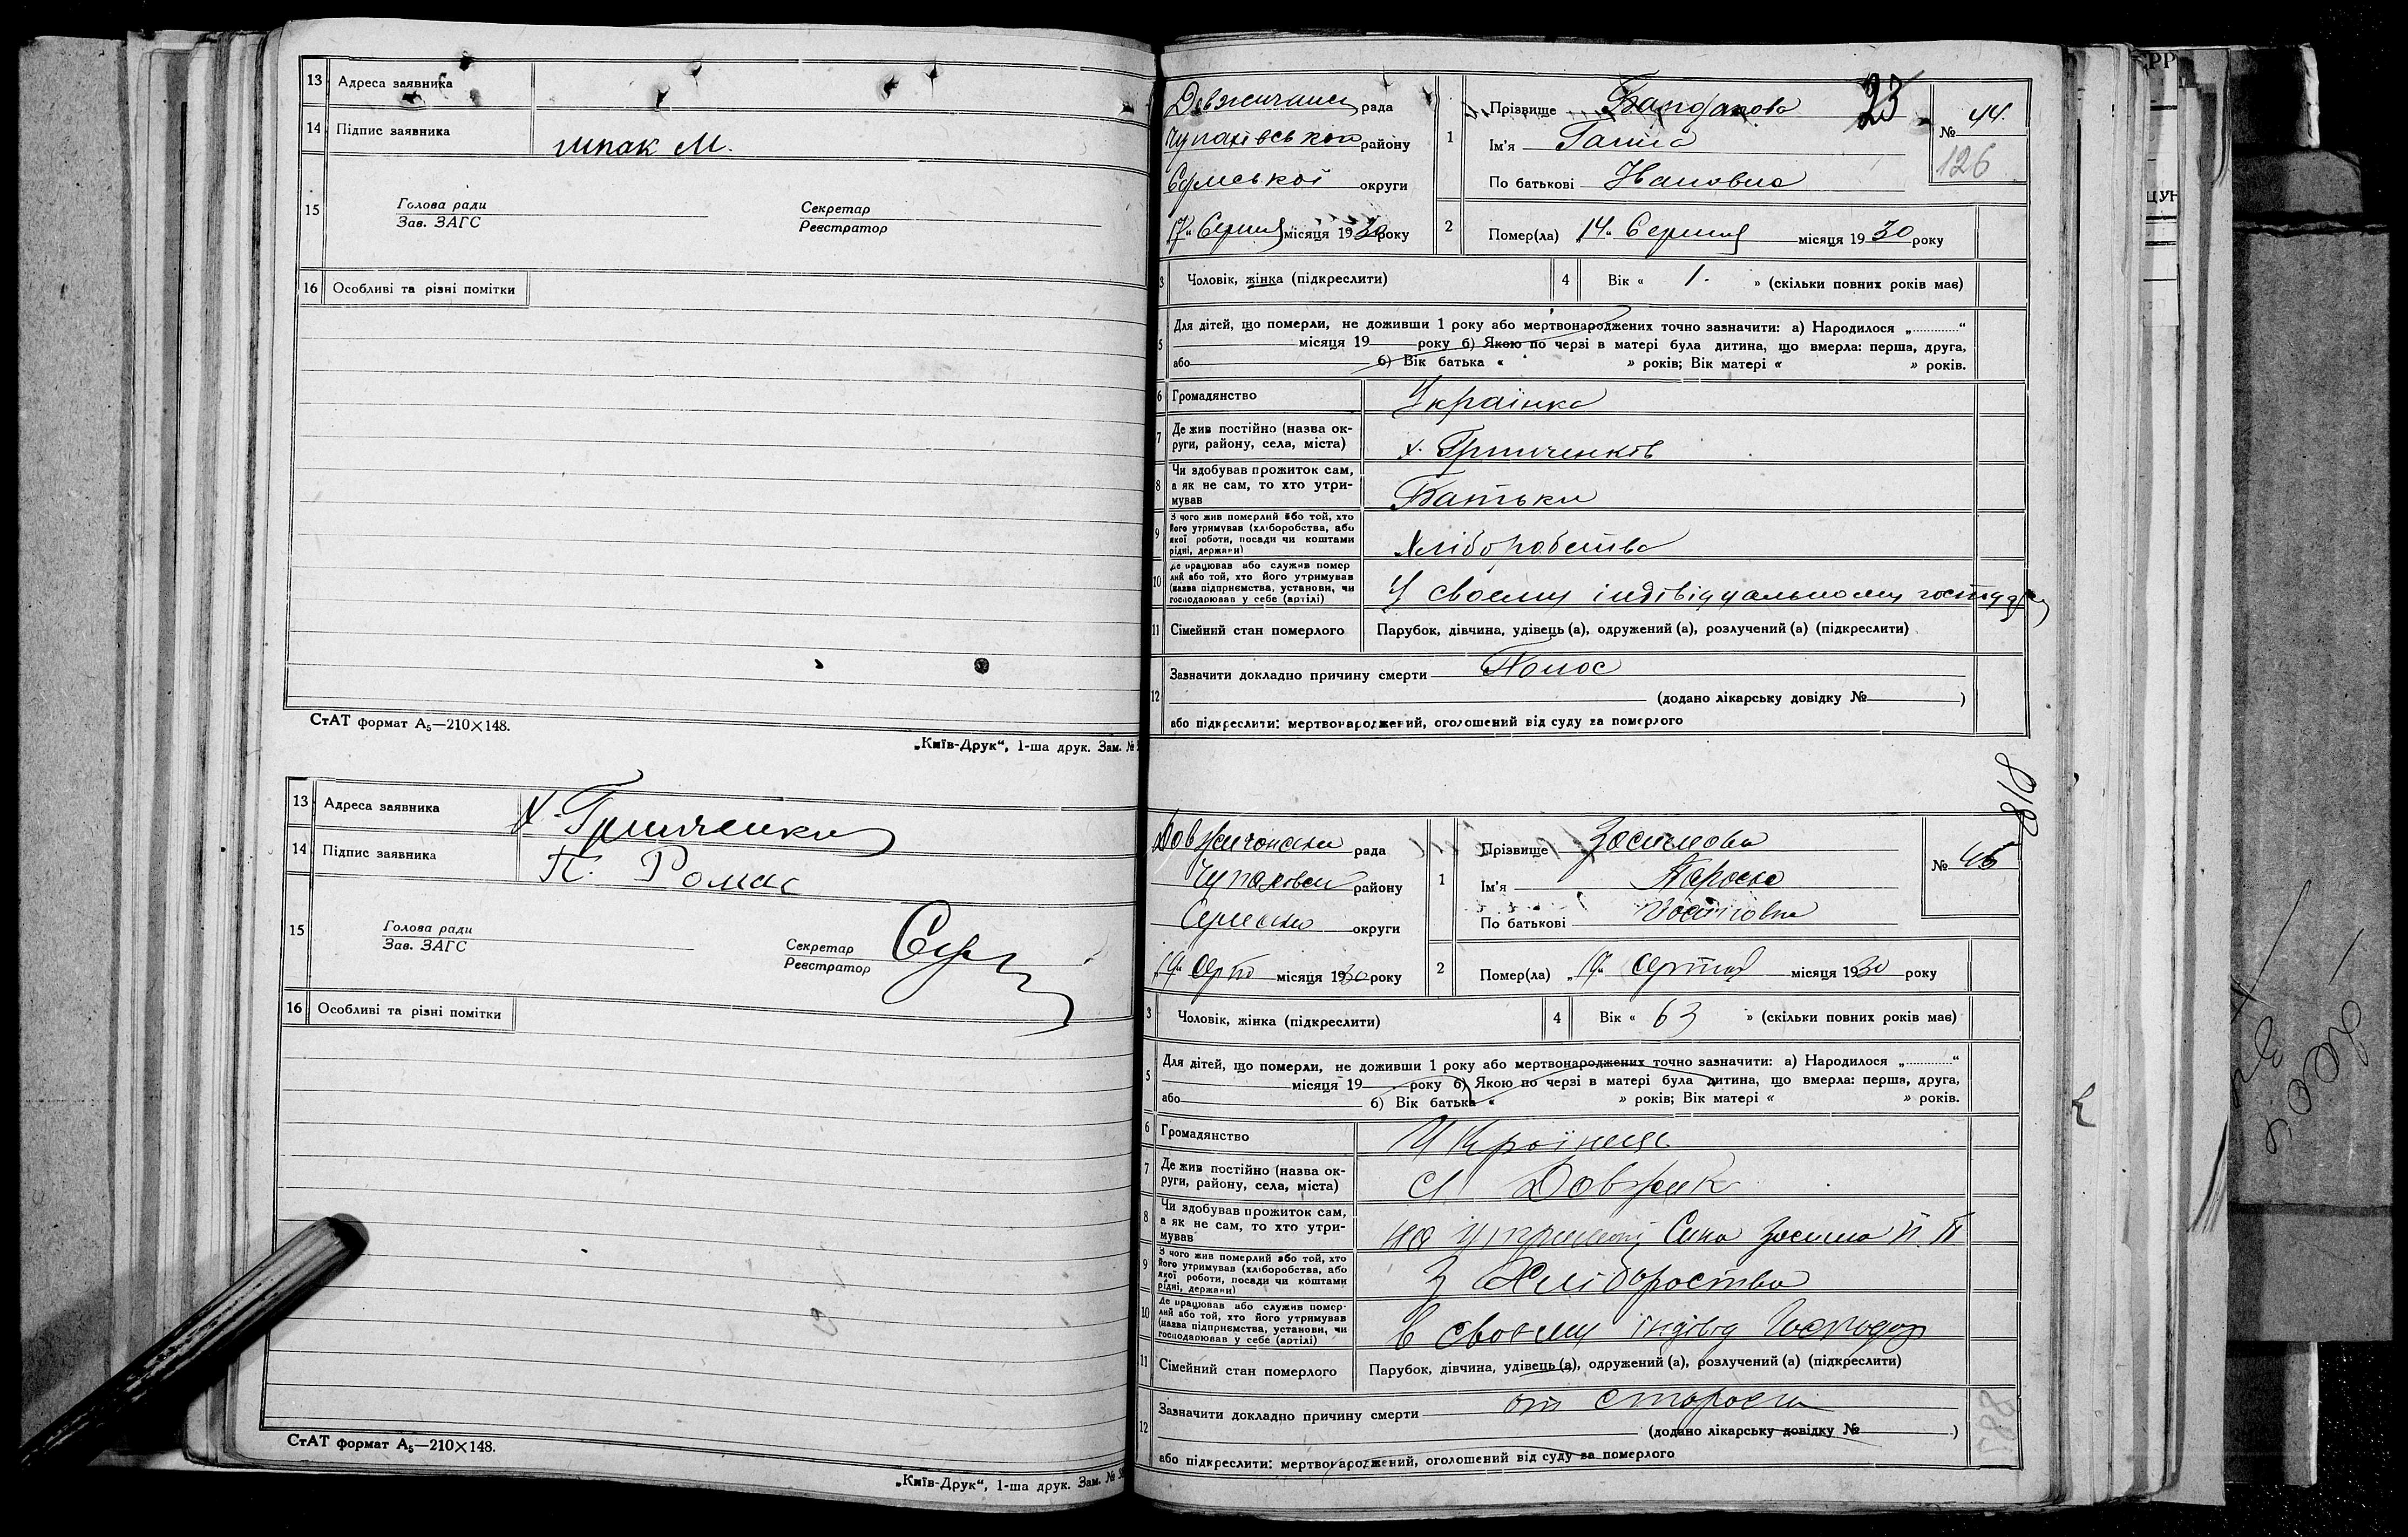 13 Адреса заявника
14 Підпис заявника шпак М.
15 Голова ради
Зав. ЗАГС
Секретар
Реєстратор
16 Особливі та різні помітки
СтАТ формат А₅—210×148.
„Київ-Друк“, 1-ша друк. Зам. №
13 Адреса заявника х. Гринченки
14 Підпис заявника П. Ромас
15 Голова ради
Зав. ЗАГС
Секретар
Реєстратор
16 Особливі та різні помітки
СтАТ формат А₅—210×148.
„Київ-Друк“, 1-ша друк. Зам. №
рада
району
Сумської округи
„17“ Серпня місяця 1930 року
1 Прізвище
23
Ім'я Ганна
По батькові
№ 44.
126
2 Помер(ла) „14“ Серпня місяця 1930 року
3 Чоловік, жінка (підкреслити)
4 Вік « 1. » (скільки повних років має)
5 Для дітей, що померли, не доживши 1 року або мертвонароджених точно зазначити: а) Народилося „.............“
місяця 19 року б) Якою по черзі в матері була дитина, що вмерла: перша, друга,
або б) Вік батька « » років; Вік матері « » років.
6 Громадянство Українка
7 Де жив постійно (назва ок-
руги, району, села, міста) х. Гринченків
8 Чи здобував прожиток сам,
а як не сам, то хто утри-
мував Батьки
9 З чого жив померлий або той, хто
його утримував (хліборобства, або
якої роботи, посади чи коштами
рідні, держави) Хліборобства
10 Де працював або служив помер
лий або той, хто його утримував
(назва підприємства, установи, чи
господарював у себе (артілі) У своєму індівідуальному
11 Сімейний стан померлого Парубок, дівчина, удівець (а), одружений (а), розлучений (а) (підкреслити)
12 Зазначити докладно причину смерти Понос
(додано лікарську довідку № )
або підкреслити: мертвонароджений, оголошений від суду за померлого
2818
рада
району
округи
місяця 1930 року
1 Прізвище Зосимова
Ім'я Параска
По батькові
№ 45
2 Помер(ла) місяця 1930 року
3 Чоловік, жінка (підкреслити)
4 Вік « 63 » (скільки повних років має)
5 Для дітей, що померли, не доживши 1 року або мертвонароджених точно зазначити: а) Народилося „.............“
місяця 19 року б) Якою по черзі в матері була дитина, що вмерла: перша, друга,
або б) Вік батька « » років; Вік матері « » років.
6 Громадянство
7 Де жив постійно (назва ок-
руги, району, села, міста) С. Довжик
8 Чи здобував прожиток сам,
а як не сам, то хто утри-
мував на Сина Зосима
9 З чого жив померлий або той, хто
його утримував (хліборобства, або
якої роботи, посади чи коштами
рідні, держави) З Хлібороства
10 Де працював або служив помер-
лий або той, хто його утримував
(назва підприємства, установи, чи
господарював у себе (артілі) в своєму індівід Господар
11 Сімейний стан померлого Парубок, дівчина, удівець (а), одружений (а), розлучений (а) (підкреслити)
12 Зазначити докладно причину смерти от старости
(додано лікарську довідку № )
або підкреслити: мертвонароджений, оголошений від суду за померлого